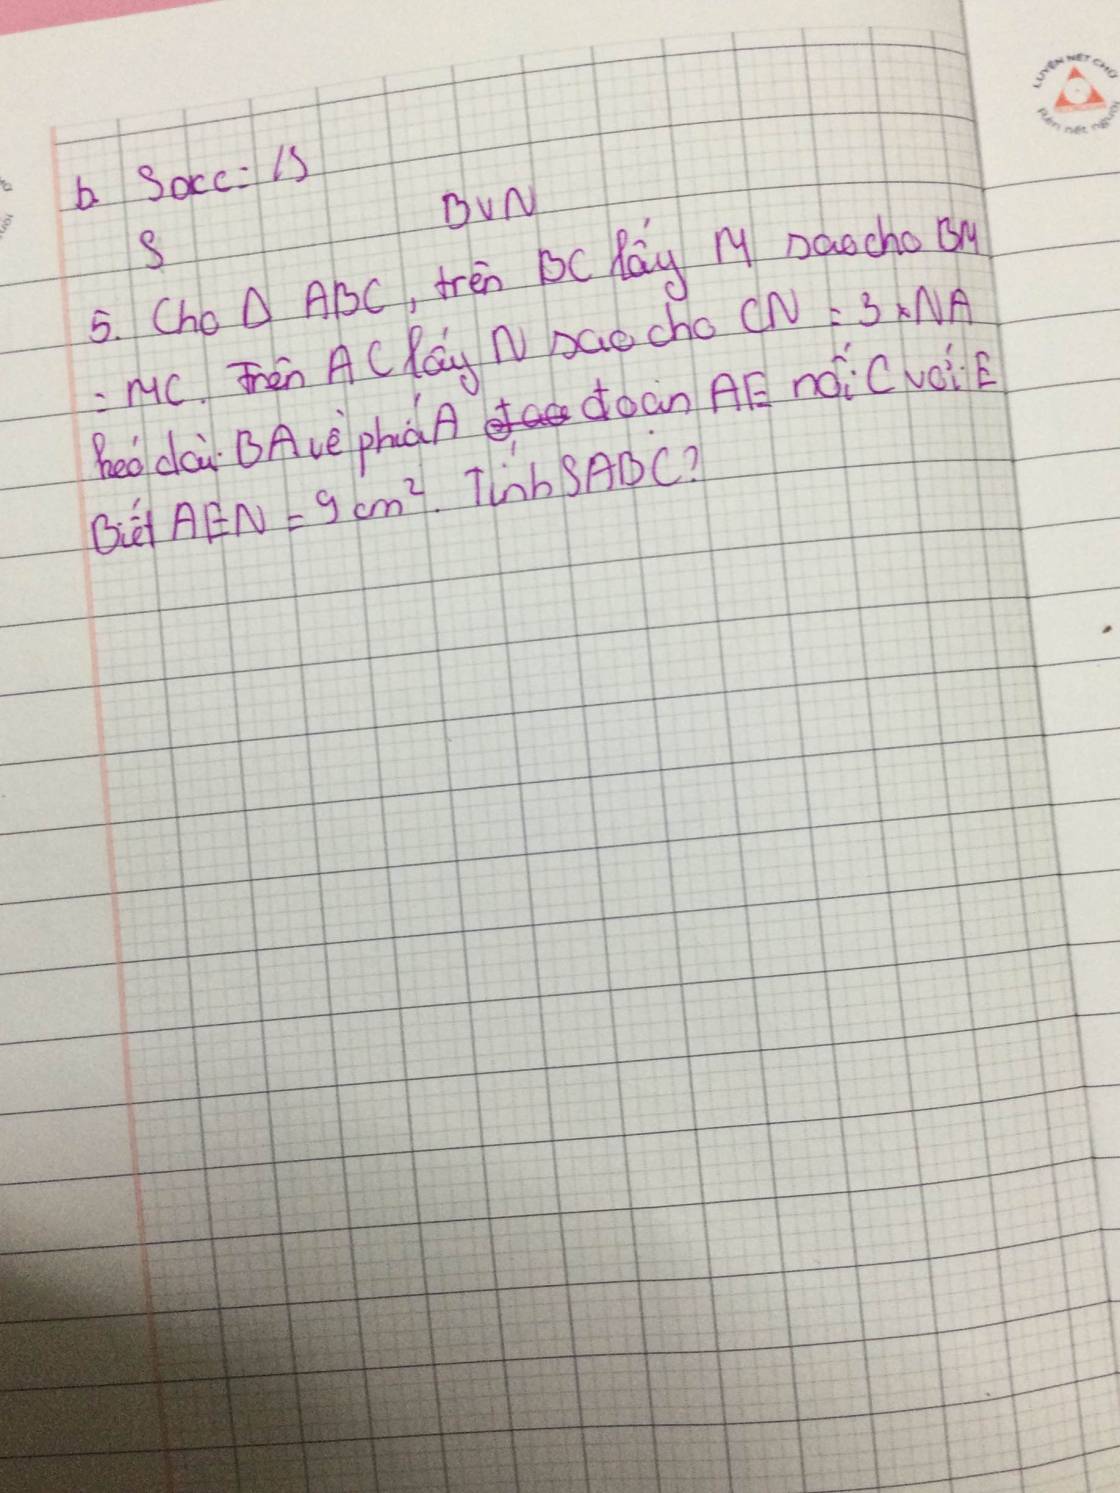 LUYỆN NÉT CHỮ
Rèn nét người
b. Socc = 15
S
BVN
5. Cho Δ ABC, trên BC lấy M sao cho BM
= MC. Trên AC lấy N sao cho CN = 3 x NA
kéo dài BA về phía A đoạn AE nối C với E
Biết AEN = 9 cm². Tính SABC?